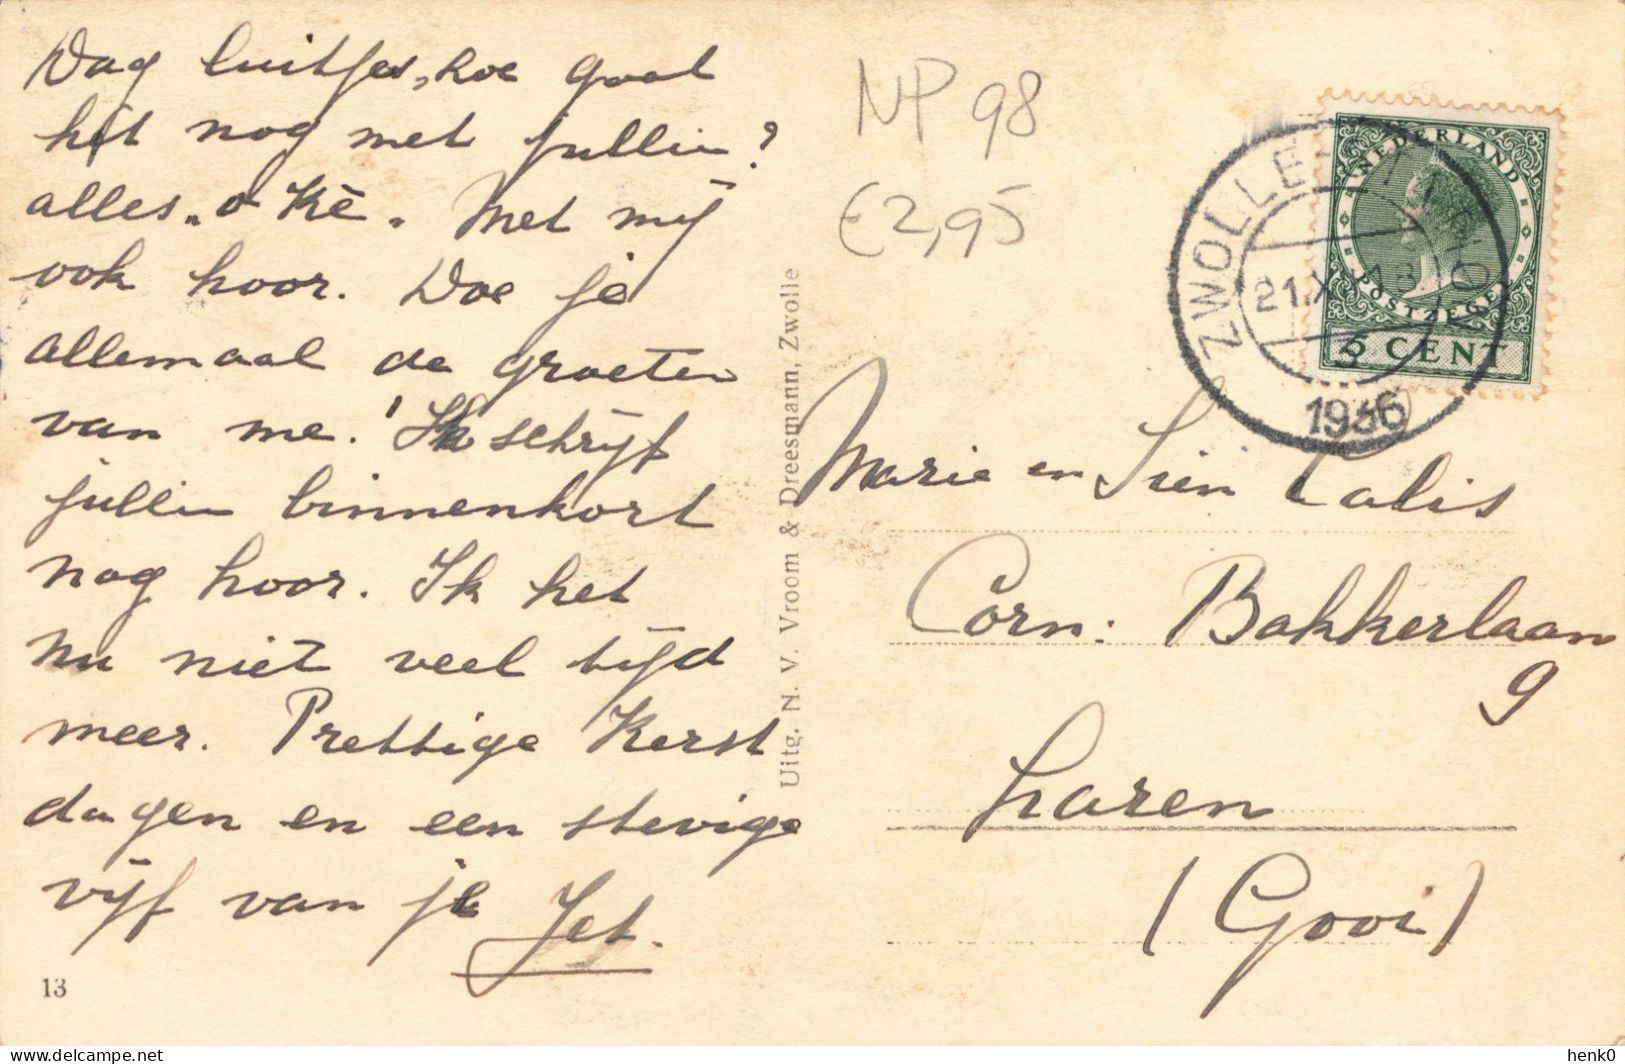 Dag luitjes, hoe gaat
het nog met jullie?
alles „o Kē". Met mij
ook hoor. Doe je
allemaal de groeten
van me! Ik schrijf
jullie binnenkort
nog hoor. Ik heb
nu niet veel tijd
meer. Prettige Kerst
dagen en een stevige
vijf van je
Jet.
13
Uitg. N. V. Vroom & Dreesmann, Zwolle
NP 98
€2,95
NEDERLAND
POSTZEGEL
5 CENT
ZWOLLE
21.X
3
1936
Marie en Sien Calis
Corn: Bakkerlaan
9
Laren
(Gooi)
henk0